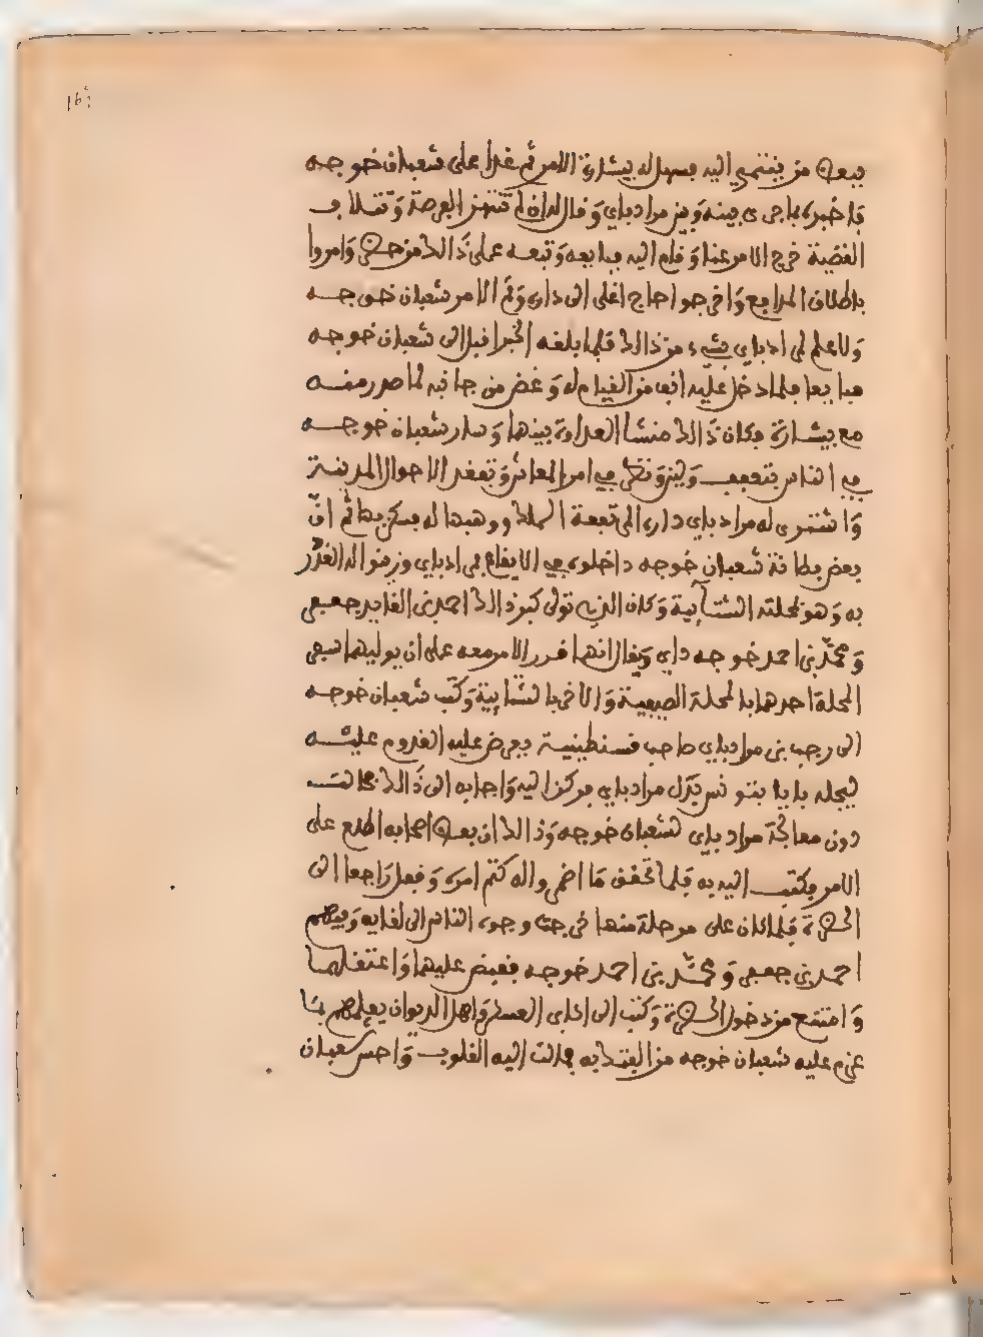 ببعض من ينتمي اليه يسهل له بيشارة الامر ثم غدا على شعبان خوجه
فاخبره بما جرى بينه وبين مراد باي وقال له ان لم تنتهز الفرصة وتتلاف
القضية خرج الامر عنا وقام اليه مبايعه وتبعه على ذالك من حضر وامروا
باطلاق المدافع واخرجوا احاج اغلى الى داره وتم الامر شعبان خوجه
ولا علم لمراد باي بشيء من ذالك فلما بلغه الخبر اقبل الى شعبان خوجه
مبايعا فلما دخل عليه انف من القيام له وغض من جانبه لما صدر منه
مع بيشارة فكان ذالك منشأ العداوة بينهما وسار شعبان خوجه
في الناس بتعجب ولين ونظر في امر المعاش وتفقد الاحوال المدينة
واشترى له مراد باي داره التي تبعة الملك ووهبها له يسكن بها ثم ان
بعض بطانة شعبان خوجه داخلوه في الايقاع بمراد باي وزينوا له الغدر
به وهو بمحلته الشتائية وكان الذي تولى كبر ذالك احمد بن القايد جعفر
ومحمد بن احمد خوجه داي ويقال انهما قرر الامر معه على ان يوليهما سفر
المحلة احدهما بالمحلة الصيفية والاخر بالشتايية وكتب شعبان خوجه
الى رجب بن مراد باي صاحب قسنطينية يعرض عليه القدوم عليه
ليجله بايا بتونس بدل مراد باي فركن اليه واجابه الى ذالك فحالت
دون معاجلة مراد باي لشعبان خوجه وذالك ان بعض اصحابه اطلع على
الامر فكتب اليه به فلما تحقق ما اضمروا له كتم امره وقفل راجعا الى
الحضرة فلما كان على مرحلة منها خرجت وجوه الناس الى لقايه وبينهم
احمد بن جعفر ومحمد بن احمد خوجه فقبض عليهما واعتقلهما
وامتنع من دخول الحضرة وكتب الى اكابر العسكر واهل الديوان يعلمهم بما
عزم عليه شعبان خوجه من الفتك به فمالت اليه القلوب واحس شعبان